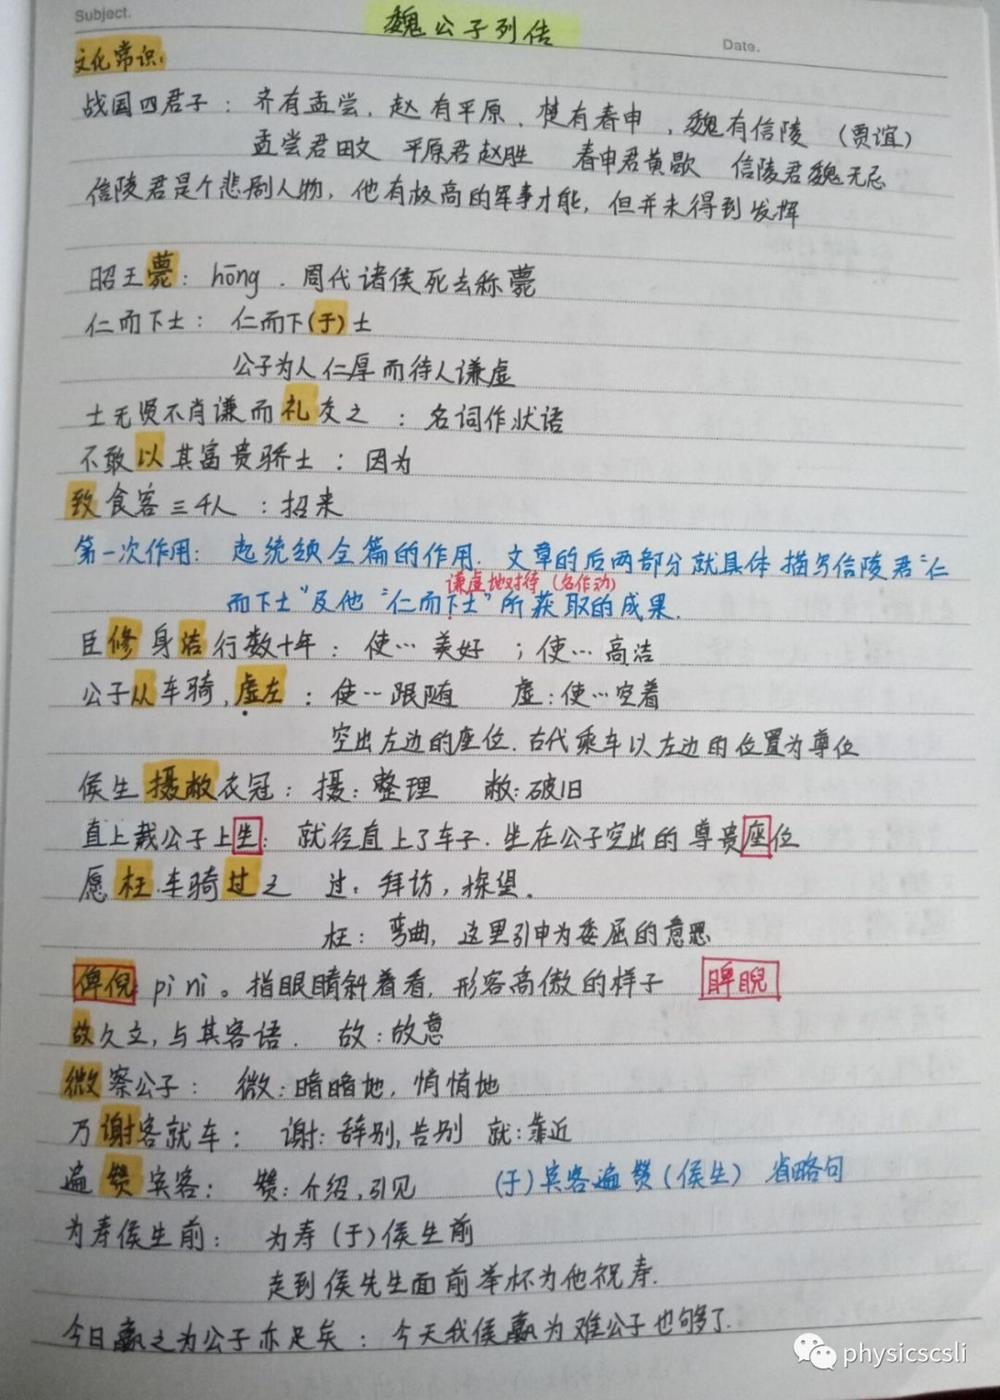 Subject.
魏公子列传
Date.
文化常识:
战国四君子: 齐有孟尝, 赵有平原, 楚有春申, 魏有信陵 (贾谊)
孟尝君田文 平原君赵胜 春申君黄歇 信陵君魏无忌
信陵君是个悲剧人物, 他有极高的军事才能, 但并未得到发挥
昭王薨: hōng. 周代诸侯死去称薨
仁而下士: 仁而下(于)士
公子为人仁厚而待人谦虚
士无贤不肖谦而礼交之: 名词作状语
不敢以其富贵骄士: 因为
致食客三千人: 招来
第一次作用: 起统领全篇的作用. 文章的后两部分就具体描写信陵君"仁
谦虚地对待(名作动)
而下士"及他"仁而下士"所获取的成果.
臣修身洁行数十年: 使…美好; 使…高洁
公子从车骑, 虚左: 使…跟随 虚: 使…空着
空出左边的座位. 古代乘车以左边的位置为尊位
侯生摄敝衣冠: 摄: 整理 敝: 破旧
直上载公子上坐: 就径直上了车子. 坐在公子空出的尊贵座位
愿枉车骑过之 过: 拜访, 探望.
枉: 弯曲, 这里引申为委屈的意思
俾倪: pi ni。指眼睛斜着看, 形容高傲的样子 睥睨
故久立, 与其客语. 故: 故意
微察公子: 微: 暗暗地, 悄悄地
乃谢客就车: 谢: 辞别, 告别 就: 靠近
遍赞宾客: 赞: 介绍, 引见 (于)宾客遍赞(侯生) 省略句
为寿侯生前: 为寿(于)侯生前
走到侯先生面前举杯为他祝寿.
今日嬴之为公子亦足矣: 今天我侯嬴为难公子也够了.
physicscsli